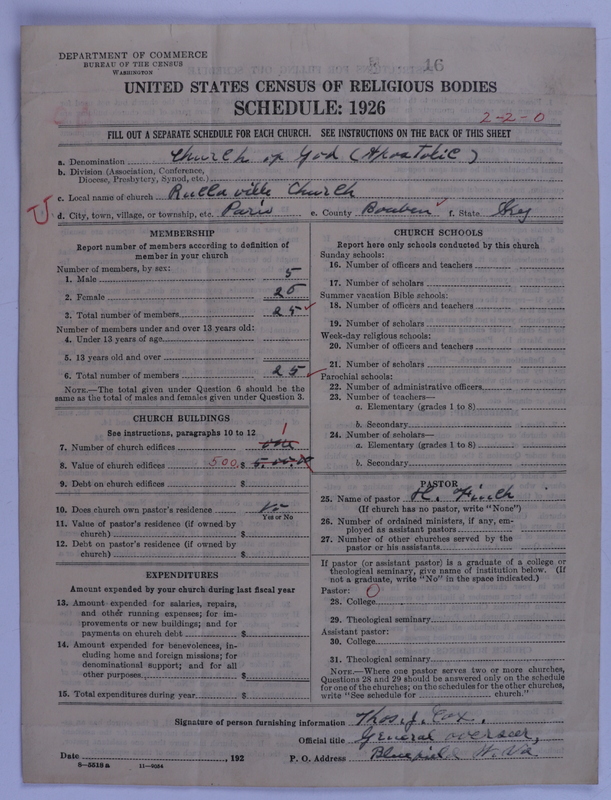 DEPARTMENT OF COMMERCE
BUREAU OF THE CENSUS
WASHINGTON
16
UNITED STATES CENSUS OF RELIGIOUS BODIES
SCHEDULE: 1926
2-2-0
FILL OUT A SEPARATE SCHEDULE FOR EACH CHURCH. SEE INSTRUCTIONS ON THE BACK OF THIS SHEET
a. Denomination Church of God (Apostolic)
b. Division (Association, Conference,
Diocese, Presbytery, Synod, etc.)
c. Local name of church Church
d. City, town, village, or township, etc. Paris e. County f. State Key
MEMBERSHIP
Report number of members according to definition of
member in your church
Number of members, by sex:
1. Male 5
2. Female 20
3. Total number of members 25
Number of members under and over 13 years old:
4. Under 13 years of age
5. 13 years old and over
6. Total number of members 25
NOTE.—The total given under Question 6 should be the
same as the total of males and females given under Question 3.
CHURCH BUILDINGS
See instructions, paragraphs 10 to 12
1
7. Number of church edifices one
8. Value of church edifices 500 $
9. Debt on church edifices $
10. Does church own pastor's residence No
Yes or No
11. Value of pastor's residence (if owned by
church) $
12. Debt on pastor's residence (if owned by
church) $
EXPENDITURES
Amount expended by your church during last fiscal year
13. Amount expended for salaries, repairs,
and other running expenses; for im-
provements or new buildings; and for
payments on church debt $
14. Amount expended for benevolences, in-
cluding home and foreign missions; for
denominational support; and for all
other purposes $
15. Total expenditures during year $
CHURCH SCHOOLS
Report here only schools conducted by this church
Sunday schools:
16. Number of officers and teachers
17. Number of scholars
Summer vacation Bible schools:
18. Number of officers and teachers
19. Number of scholars
Week-day religious schools:
20. Number of officers and teachers
21. Number of scholars
Parochial schools:
22. Number of administrative officers
23. Number of teachers—
a. Elementary (grades 1 to 8)
b. Secondary
24. Number of scholars—
a. Elementary (grades 1 to 8)
b. Secondary
PASTOR
25. Name of pastor H. Finch
(If church has no pastor, write "None")
26. Number of ordained ministers, if any, em-
ployed as assistant pastors
27. Number of other churches served by the
pastor or his assistants
If pastor (or assistant pastor) is a graduate of a college or
theological seminary, give name of institution below. (If
not a graduate, write "No" in the space indicated.)
Pastor: 0
28. College
29. Theological seminary
Assistant pastor:
30. College
31. Theological seminary
NOTE.—Where one pastor serves two or more churches,
Questions 28 and 29 should be answered only on the schedule
for one of the churches; on the schedules for the other churches,
write "See schedule for church."
Signature of person furnishing information Thos. J. Cox.
Official title General overseer,
Date , 192 P. O. Address Bluefield W. Va
8—5518a 11—9054